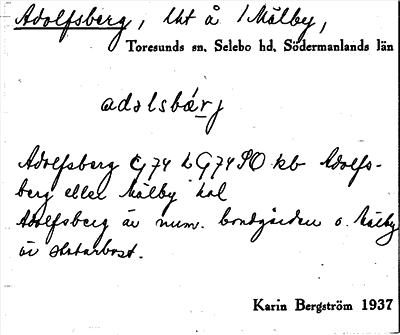 Adolfsberg, lht å 1 Mälby,
Toresunds sn, Selebo hd, Södermanlands län
adolsbärj
Adolfsberg G 74 L G 74 SO kb Adolfs-
berg eller Mälby
Adolfsberg är num. bondgården o. Mälby
är statarbost.
Karin Bergström 1937